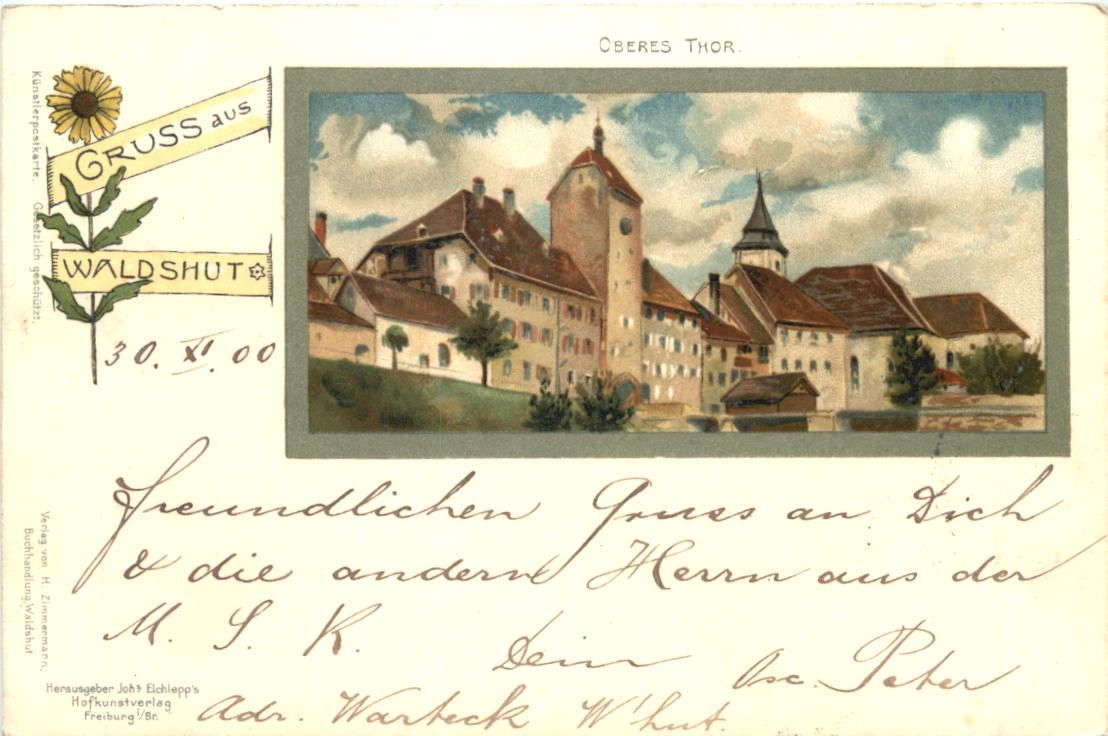 OBERES THOR.
GRUSS aus
WALDSHUT
Künstlerpostkarte. Gesetzlich geschützt.
30. XI. 00
freundlichen Gruss an Dich
& die andern Herrn aus der
M. S. K.
Dein
Osc. Peter
Adr. Warteck W'hut.
Verlag von H. Zimmermann,
Buchhandlung, Waldshut
Herausgeber Johs Elchlepp's
Hofkunstverlag
Freiburg i/Br.